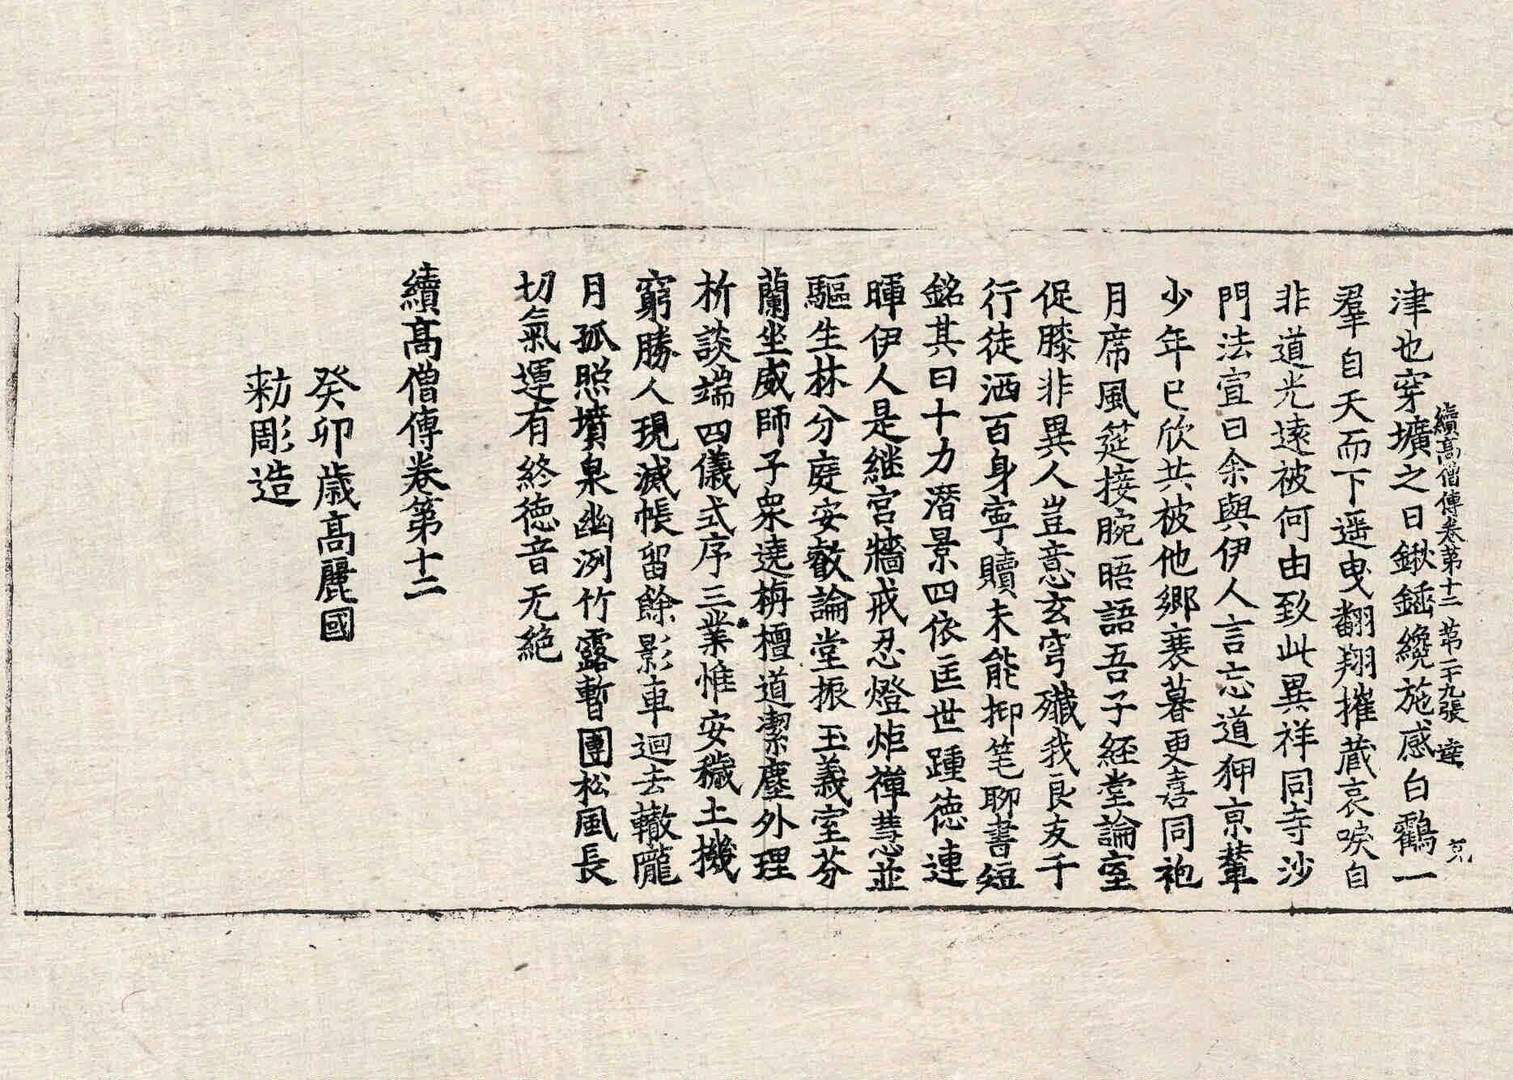 續高僧傳卷第十二 第二十九張 達
津也穿壙之日鍬鍤纔施感白鸖一
羣自天而下遥曳翻翔摧藏哀唳自
非道光遠被何由致此異祥同寺沙
門法宣曰余與伊人言忘道狎京輦
少年已欣共被他鄉衰暮更喜同袍
月席風筵接腕晤語吾子経堂論室
促膝非異人豈意玄穹殲我良友千
行徒洒百身寧贖未能抑笔聊書短
銘其曰十力潛景四依匡世踵徳連
暉伊人是継宫牆戒忍燈炬禪慧並
驅生林分㢝安叡論堂振玉義室芬
蘭坐威師子衆遶栴檀道潔塵外理
析談端四儀式序三業惟安穢土機
窮勝人現滅帳留餘影車迴去轍隴
月孤照墳泉幽洌竹露暫團松風長
切氣運有終徳音无絶
續高僧傳卷第十二
癸卯歳高麗國
勑彫造